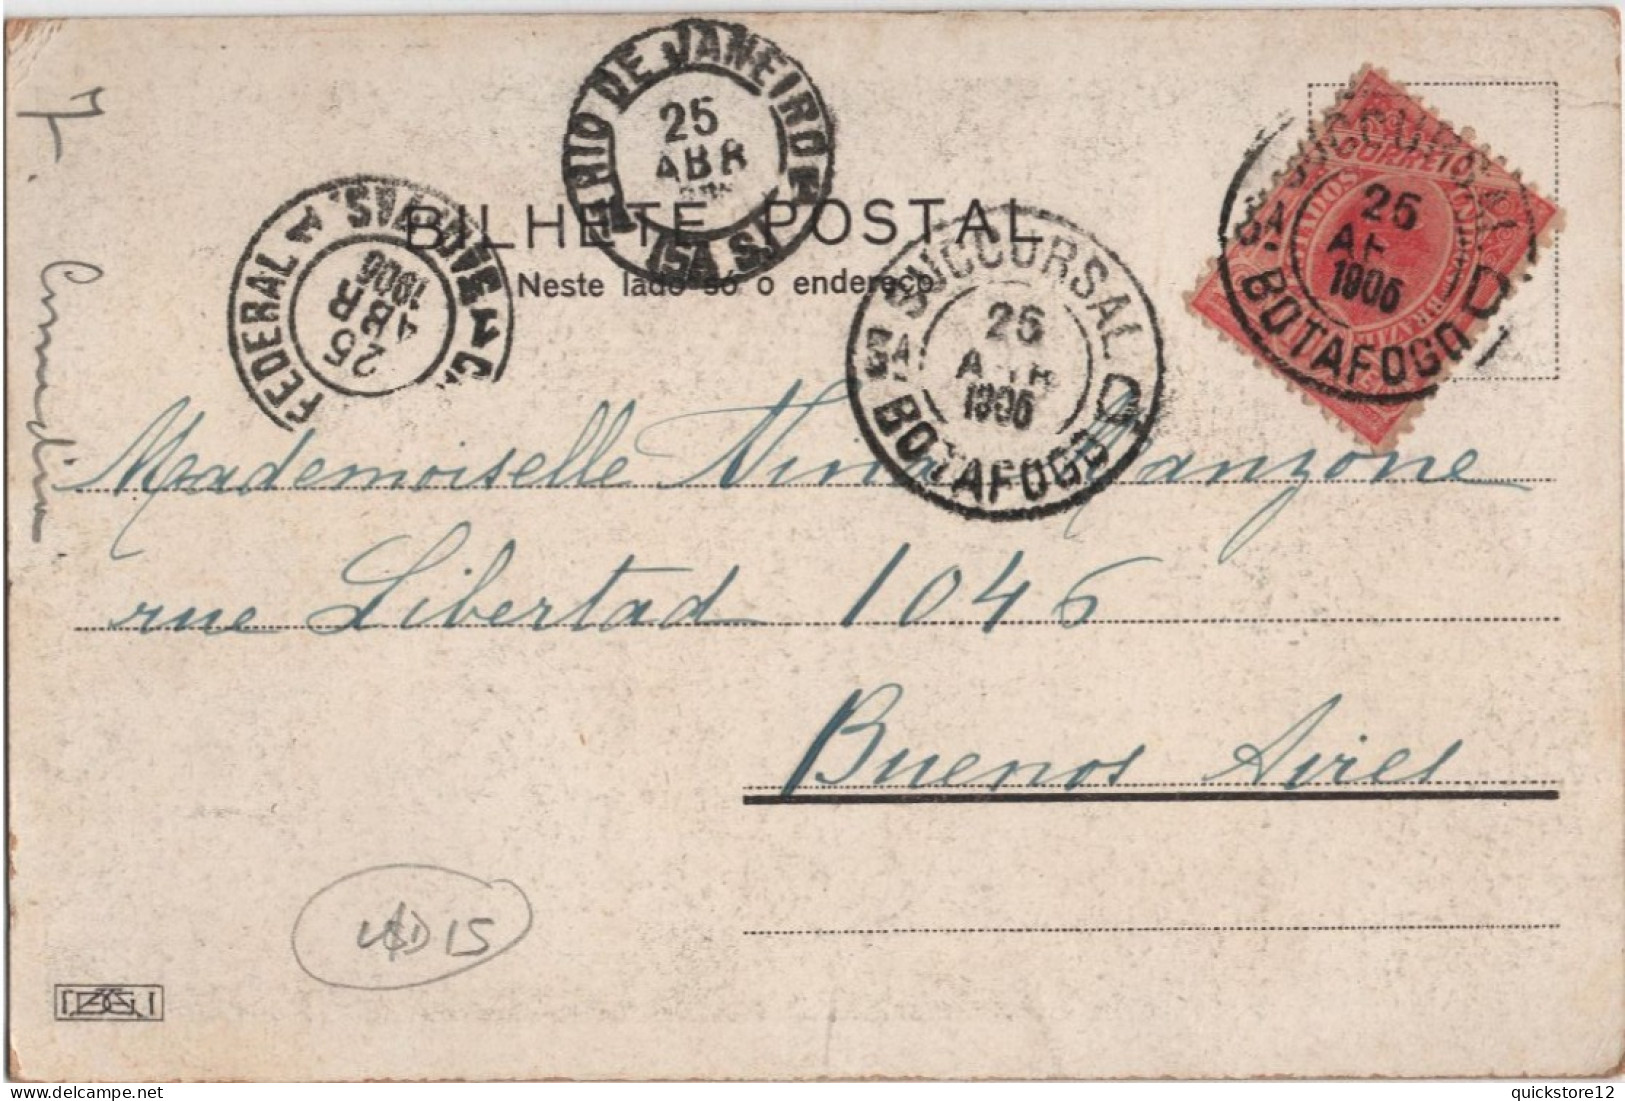 RIO DE JANEIRO
25
ABR
BILHETE POSTAL
Neste lado só o endereço
FEDERAL
25
ABR
1906
SUCCURSAL
25
1906
BOTAFOGO
SUCCURSAL
CORREIO
25
1906
BOTAFOGO
Mademoiselle Nina Manzone
rue Libertad 1046
Buenos Aires
USD 15
delcampe.net
quickstore12